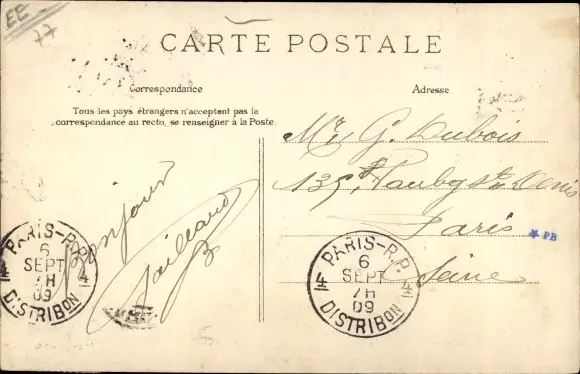 EE
77
CARTE POSTALE
Correspondance
Adresse
Tous les pays étrangers n'acceptent pas la
correspondance au recto, se renseigner à la Poste.
Mr G. Dubois
135, Faubg St Denis
Paris
Seine
Bonjour
Gaillard
PARIS-R.P.
6
SEPT
7H
09
DISTRIBON
PARIS-R.P.
6
SEPT
7H
09
DISTRIBON
PB